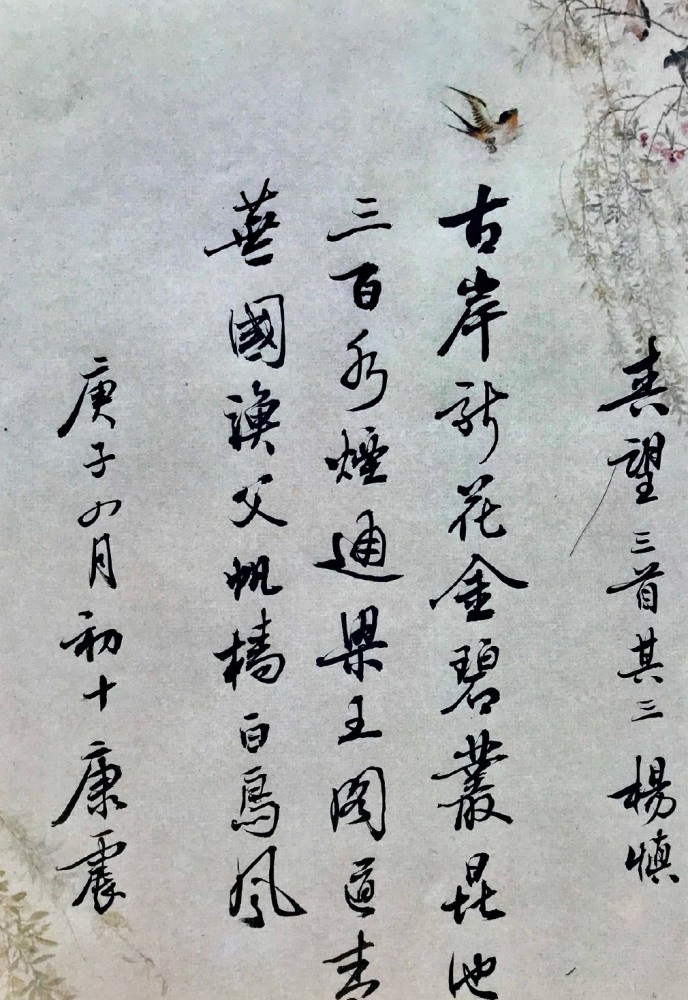 春望三首其三 楊慎
古岸新花金碧叢昆池
三百水煙通梁王閣道春
蕪國漁父帆檣白鳥風
庚子四月初十康震